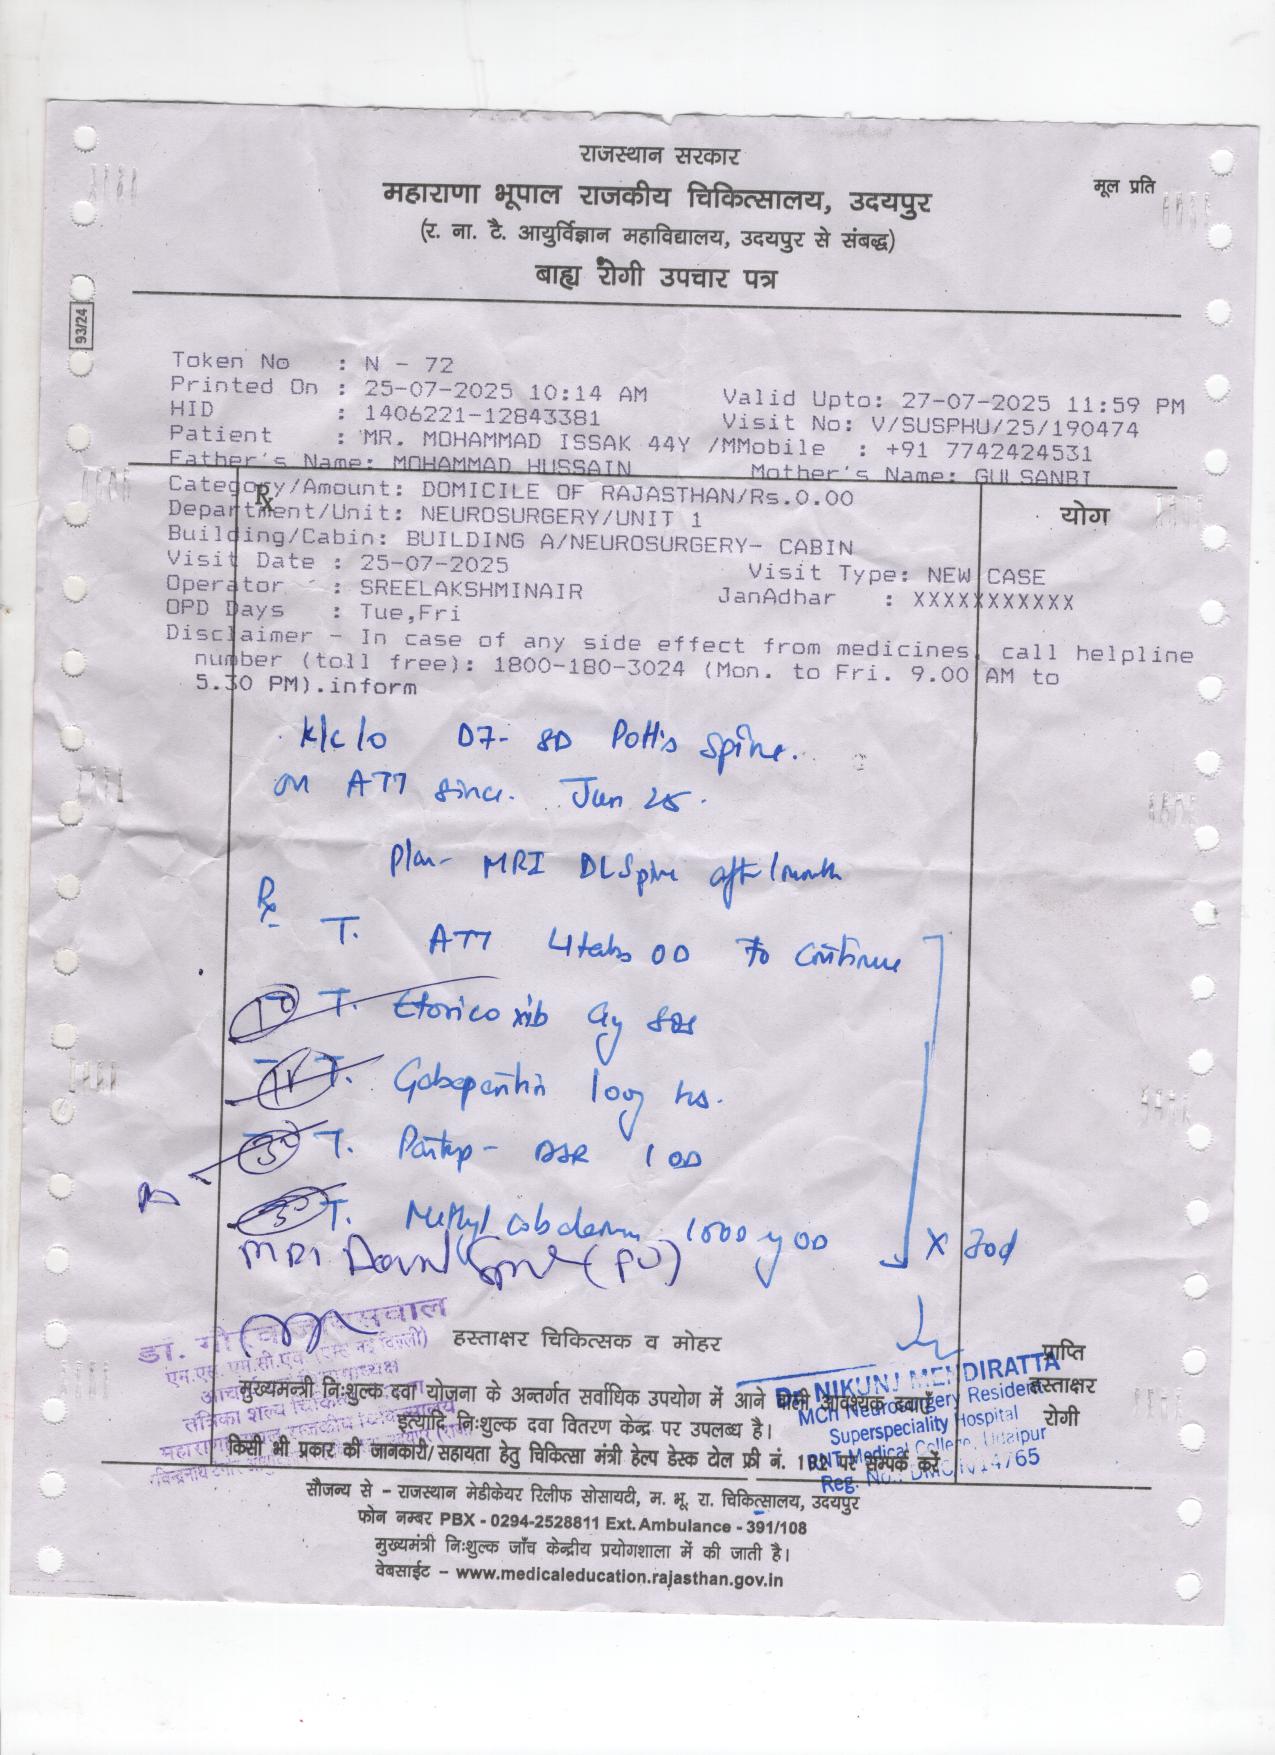 राजस्थान सरकार
महाराणा भूपाल राजकीय चिकित्सालय, उदयपुर
मूल प्रति
(र. ना. टै. आयुर्विज्ञान महाविद्यालय, उदयपुर से संबद्ध)
बाह्य रोगी उपचार पत्र
93/24
Token No : N - 72
Printed On : 25-07-2025 10:14 AM Valid Upto: 27-07-2025 11:59 PM
HID : 1406221-12843381 Visit No: V/SUSPHU/25/190474
Patient : MR. MOHAMMAD ISSAK 44Y /MMobile : +91 7742424531
Father's Name: MOHAMMAD HUSSAIN Mother's Name: GULSANBI
Category/Amount: DOMICILE OF RAJASTHAN/Rs.0.00
Rx योग
Department/Unit: NEUROSURGERY/UNIT 1
Building/Cabin: BUILDING A/NEUROSURGERY- CABIN
Visit Date : 25-07-2025 Visit Type: NEW CASE
Operator : SREELAKSHMINAIR JanAdhar : XXXXXXXXXXX
OPD Days : Tue,Fri
Disclaimer - In case of any side effect from medicines, call helpline
number (toll free): 1800-180-3024 (Mon. to Fri. 9.00 AM to
5.30 PM).inform
k/c/o D7- 8D Pott's Spine.
on ATT since. Jun 25.
Plan- MRI DLSpine after 1 month
Rx
T. ATT 4 tabs OD to continue
T. Etoricoxib 90 SOS
T. Gabapentin 100 hs.
T. Pantop- DSR 1 OD
T. Methylcobalamin 1000 OD x 30d
MRI Dorsal Spine
हस्ताक्षर चिकित्सक व मोहर
प्राप्ति
हस्ताक्षर
रोगी
Dr. NIKUNJ MENDIRATTA
MCh Neurosurgery Resident
Superspeciality Hospital
RNT Medical College, Udaipur
मुख्यमन्त्री निःशुल्क दवा योजना के अन्तर्गत सर्वाधिक उपयोग में आने वाली आवश्यक दवाएँ
इत्यादि निःशुल्क दवा वितरण केन्द्र पर उपलब्ध है।
किसी भी प्रकार की जानकारी/सहायता हेतु चिकित्सा मंत्री हेल्प डेस्क टोल फ्री नं. पर सम्पर्क करें
सौजन्य से - राजस्थान मेडीकेयर रिलीफ सोसायटी, म. भू. रा. चिकित्सालय, उदयपुर
फोन नम्बर PBX - 0294-2528811 Ext. Ambulance - 391/108
मुख्यमंत्री निःशुल्क जाँच केन्द्रीय प्रयोगशाला में की जाती है।
वेबसाईट - www.medicaleducation.rajasthan.gov.in